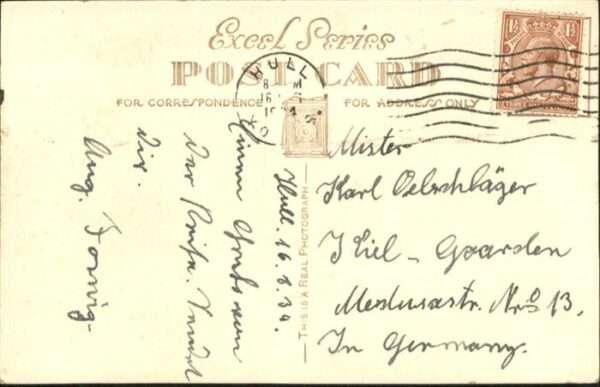 Excel Series
POST CARD
FOR CORRESPONDENCE
FOR ADDRESS ONLY
HULL
1½ 1½
THIS IS A REAL PHOTOGRAPH
Hull. 16.8.34.
Einen Gruß von
der Reise. Sendet
Dir.
Aug.
Mister
Karl Oelschläger
Kiel - Gaarden
Medusastr. No 13.
In Germany.